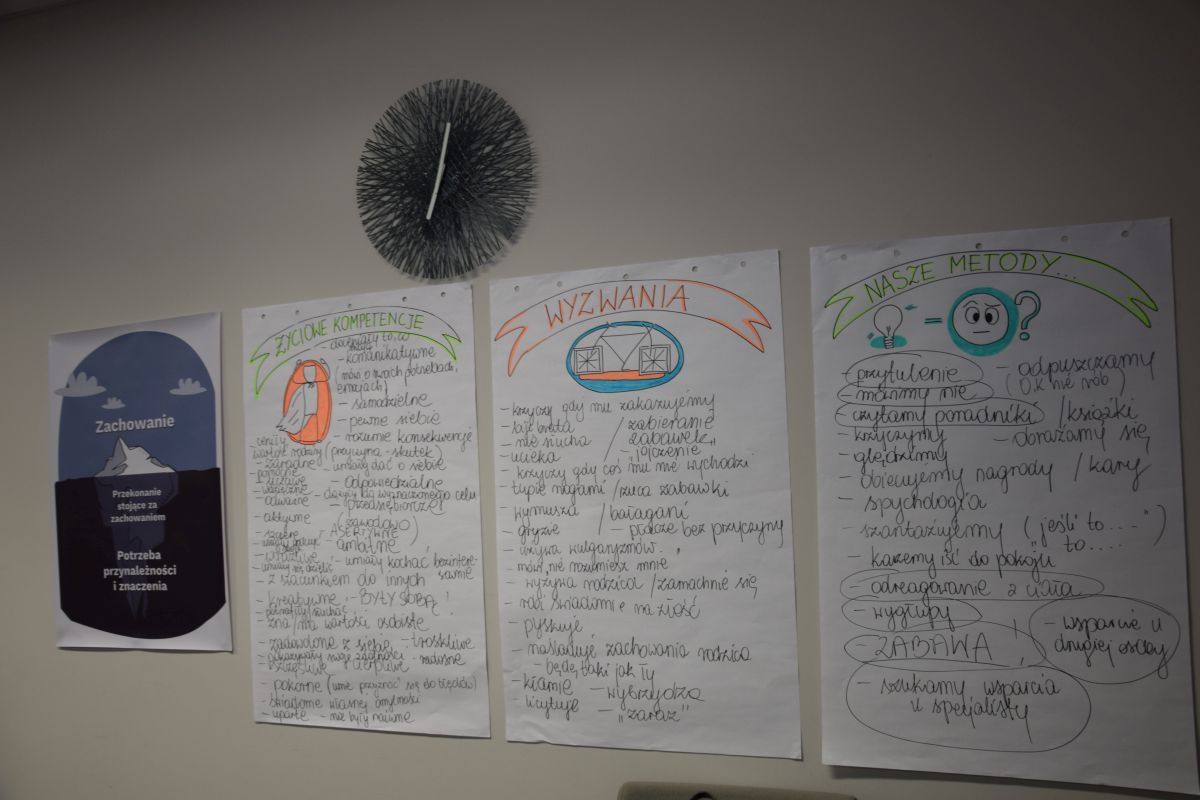 Zachowanie
Przekonanie
stojące za
zachowaniem
Potrzeba
przynależności
i znaczenia
ŻYCIOWE KOMPETENCJE
- doceniały to, co
- komunikatywne
(mówi o swoich potrzebach,
emocjach)
- samodzielne
- pewne siebie
- rozumie konsekwencje
(przyczyna - skutek)
- zaradne
- umiały dbać o siebie
- pomocne
- odpowiedzialne
- uczciwe
- dążyły do wyznaczonego celu
- odważne
- przedsiębiorcze
- aktywne
(zawodowo)
ASERTYWNE
- ambitne
- wrażliwe
- umiały kochać bezintere-
sownie
- z szacunkiem do innych
- kreatywne
- BYŁY SOBĄ!
- zna/ma wartości osobiste
- zadowolone z siebie
- troskliwe
- radosne
- szczęśliwe
- cierpliwe
- pokorne (umie przyznać się do błędów)
- świadome własnej omylności
- uparte - nie były naiwne
WYZWANIA
- krzyczy gdy mu zakazujemy
- bije brata / zabieranie
zabawek
- nie słucha
- ucieka - jojczenie
- krzyczy gdy coś mu nie wychodzi
- tupie nogami / rzuca zabawki
- wymusza / bałagani
- gryzie - płacze bez przyczyny
- używa wulgaryzmów
- mówi, nie rozumiesz mnie
- wyzywa rodzica / zamachnie się
- robi świadomie na złość
- pyskuje
- naśladuje zachowania rodzica
- będę taki jak ty
- kłamie - wybrzydza
- licytuje - "zaraz"
NASZE METODY...
= ?
- przytulenie - odpuszczamy
(OK nie rób)
- mówimy nie
- czytamy poradniki / książki
- krzyczymy - obrażamy się
- ględzimy
- obiecujemy nagrody / kary
- spychologia
- szantażujemy ("jeśli to....")
to....
- każemy iść do pokoju
- odreagowanie z ciała
- wygłupy
- ZABAWA !
- wsparcie u
drugiej osoby
- szukamy wsparcia
u specjalisty